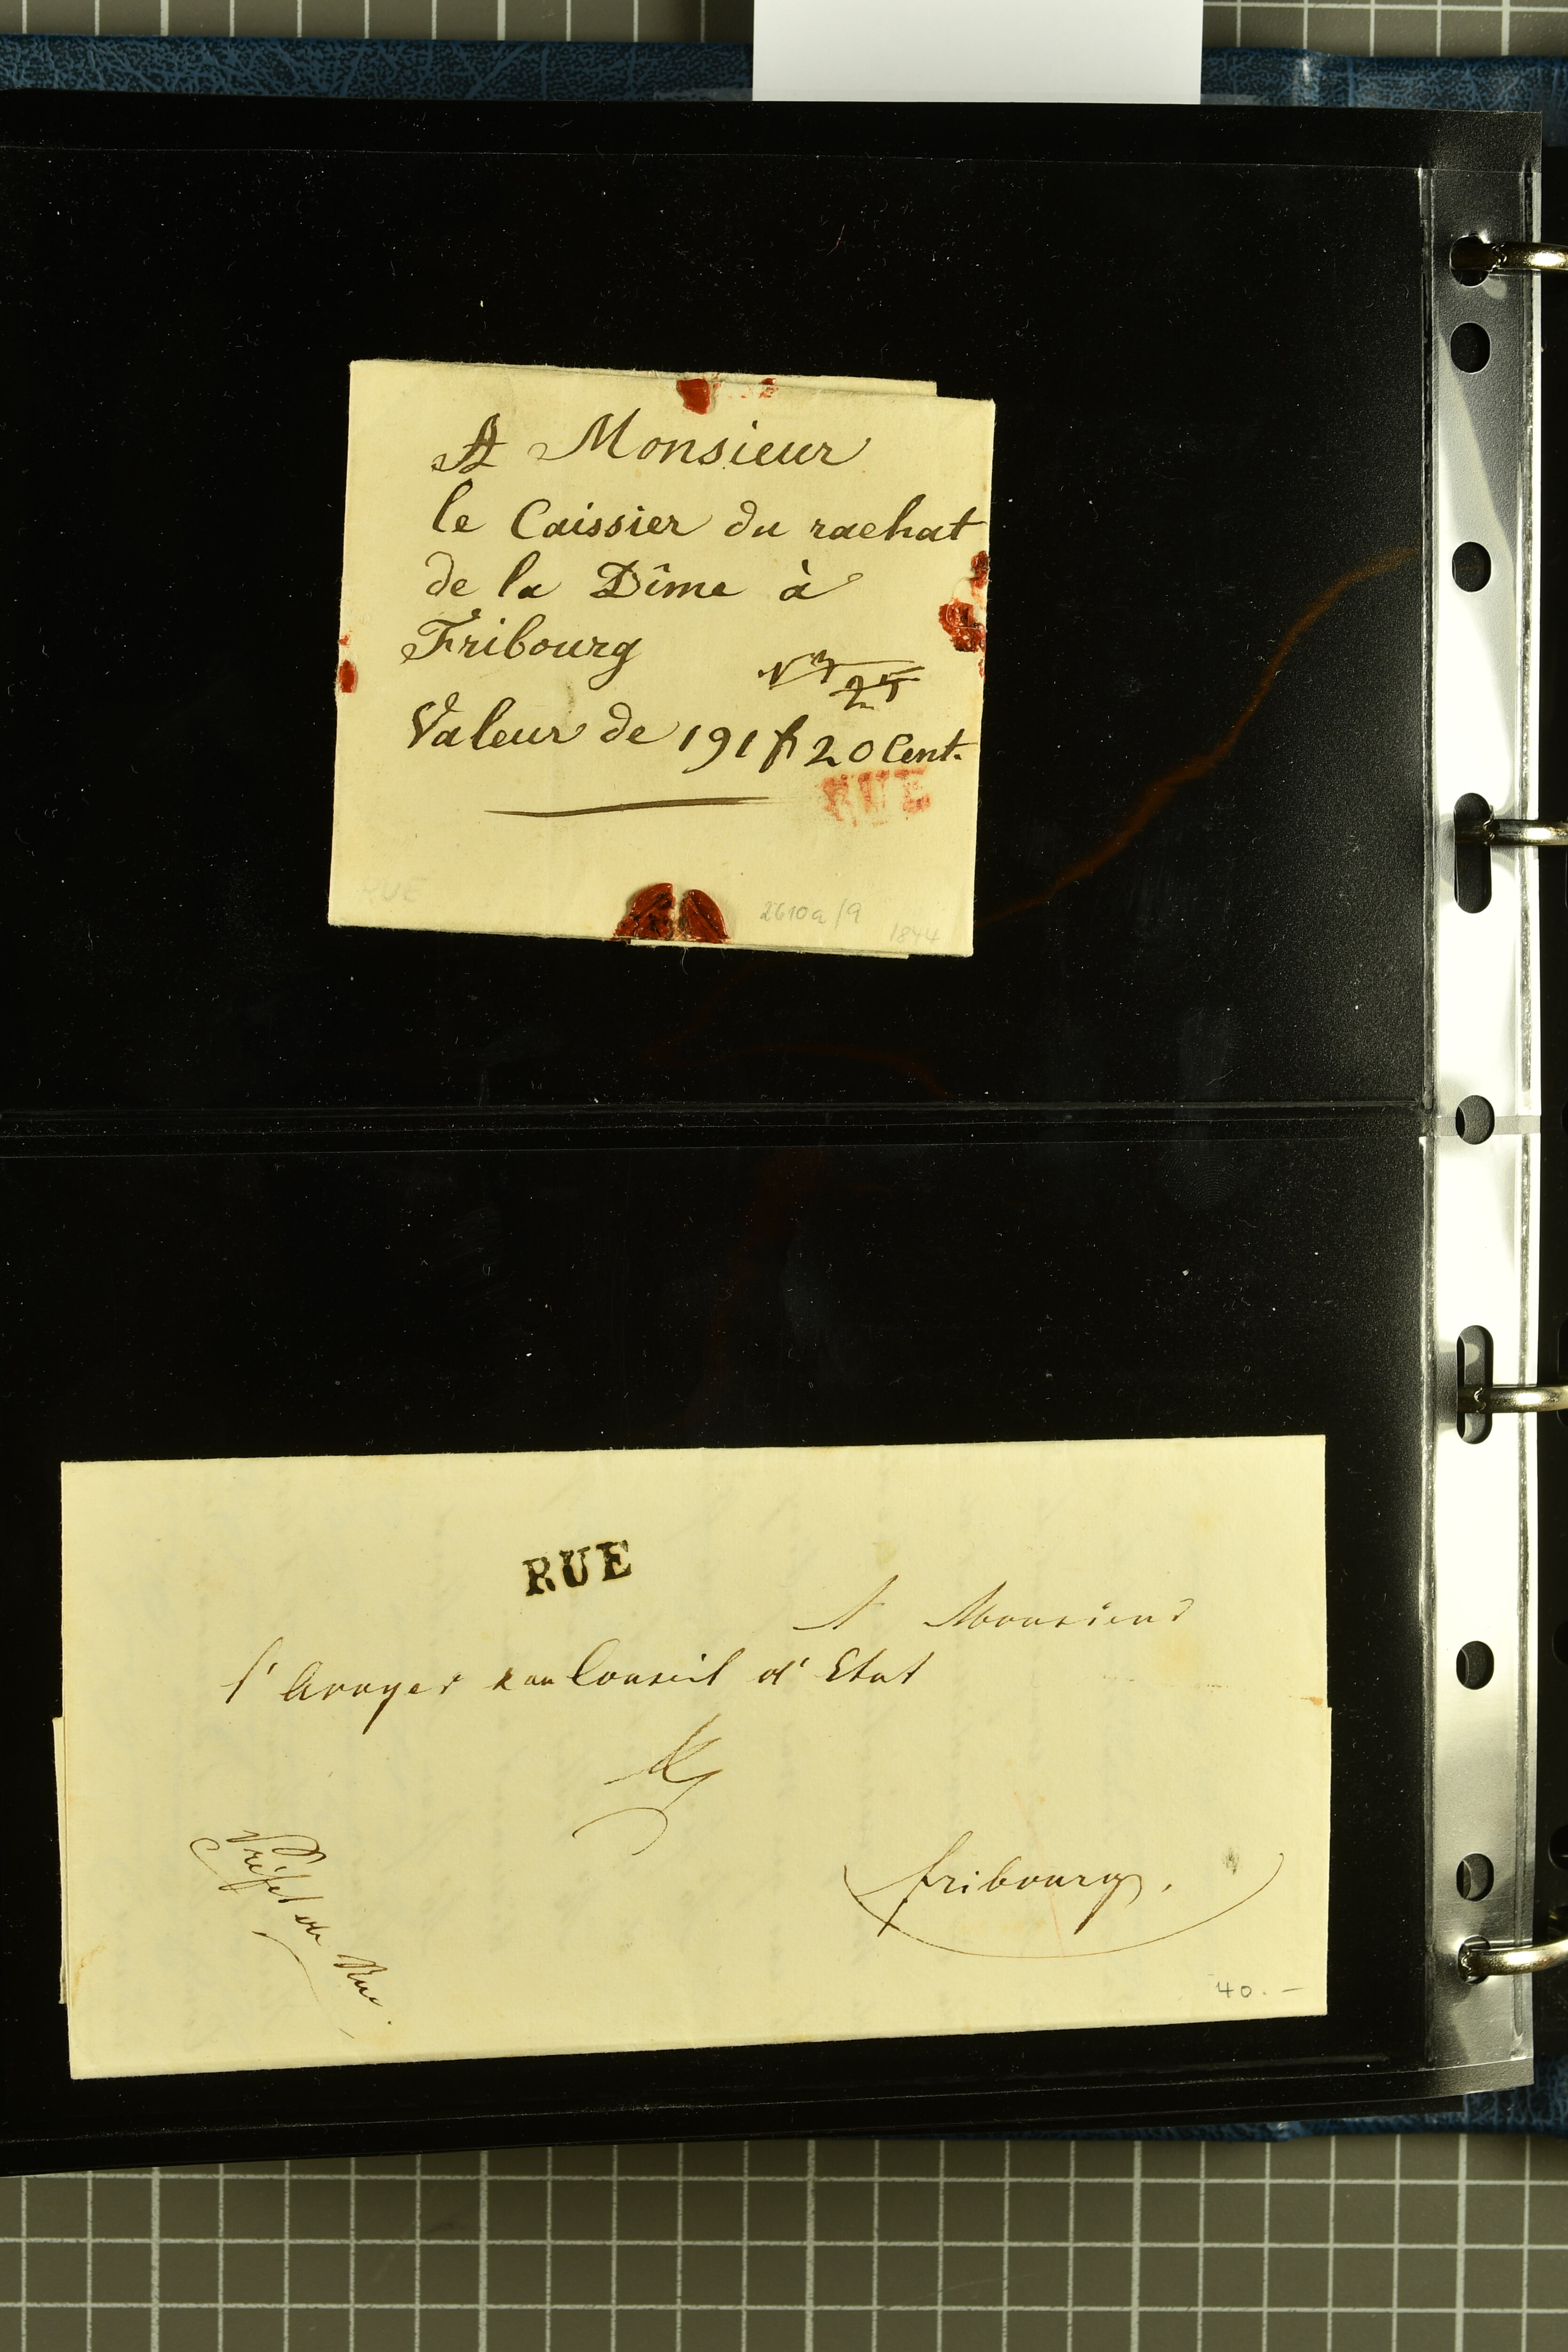 A Monsieur
le Caissier du rachat
de la Dîme à
Fribourg
25
Valeur de 191 f 20 Cent.
RUE
RUE
2610a/9
1844
RUE
A Monsieur
l'Avoyer & au Conseil d'Etat
fribourg.
Préfet de Rue.
40.-